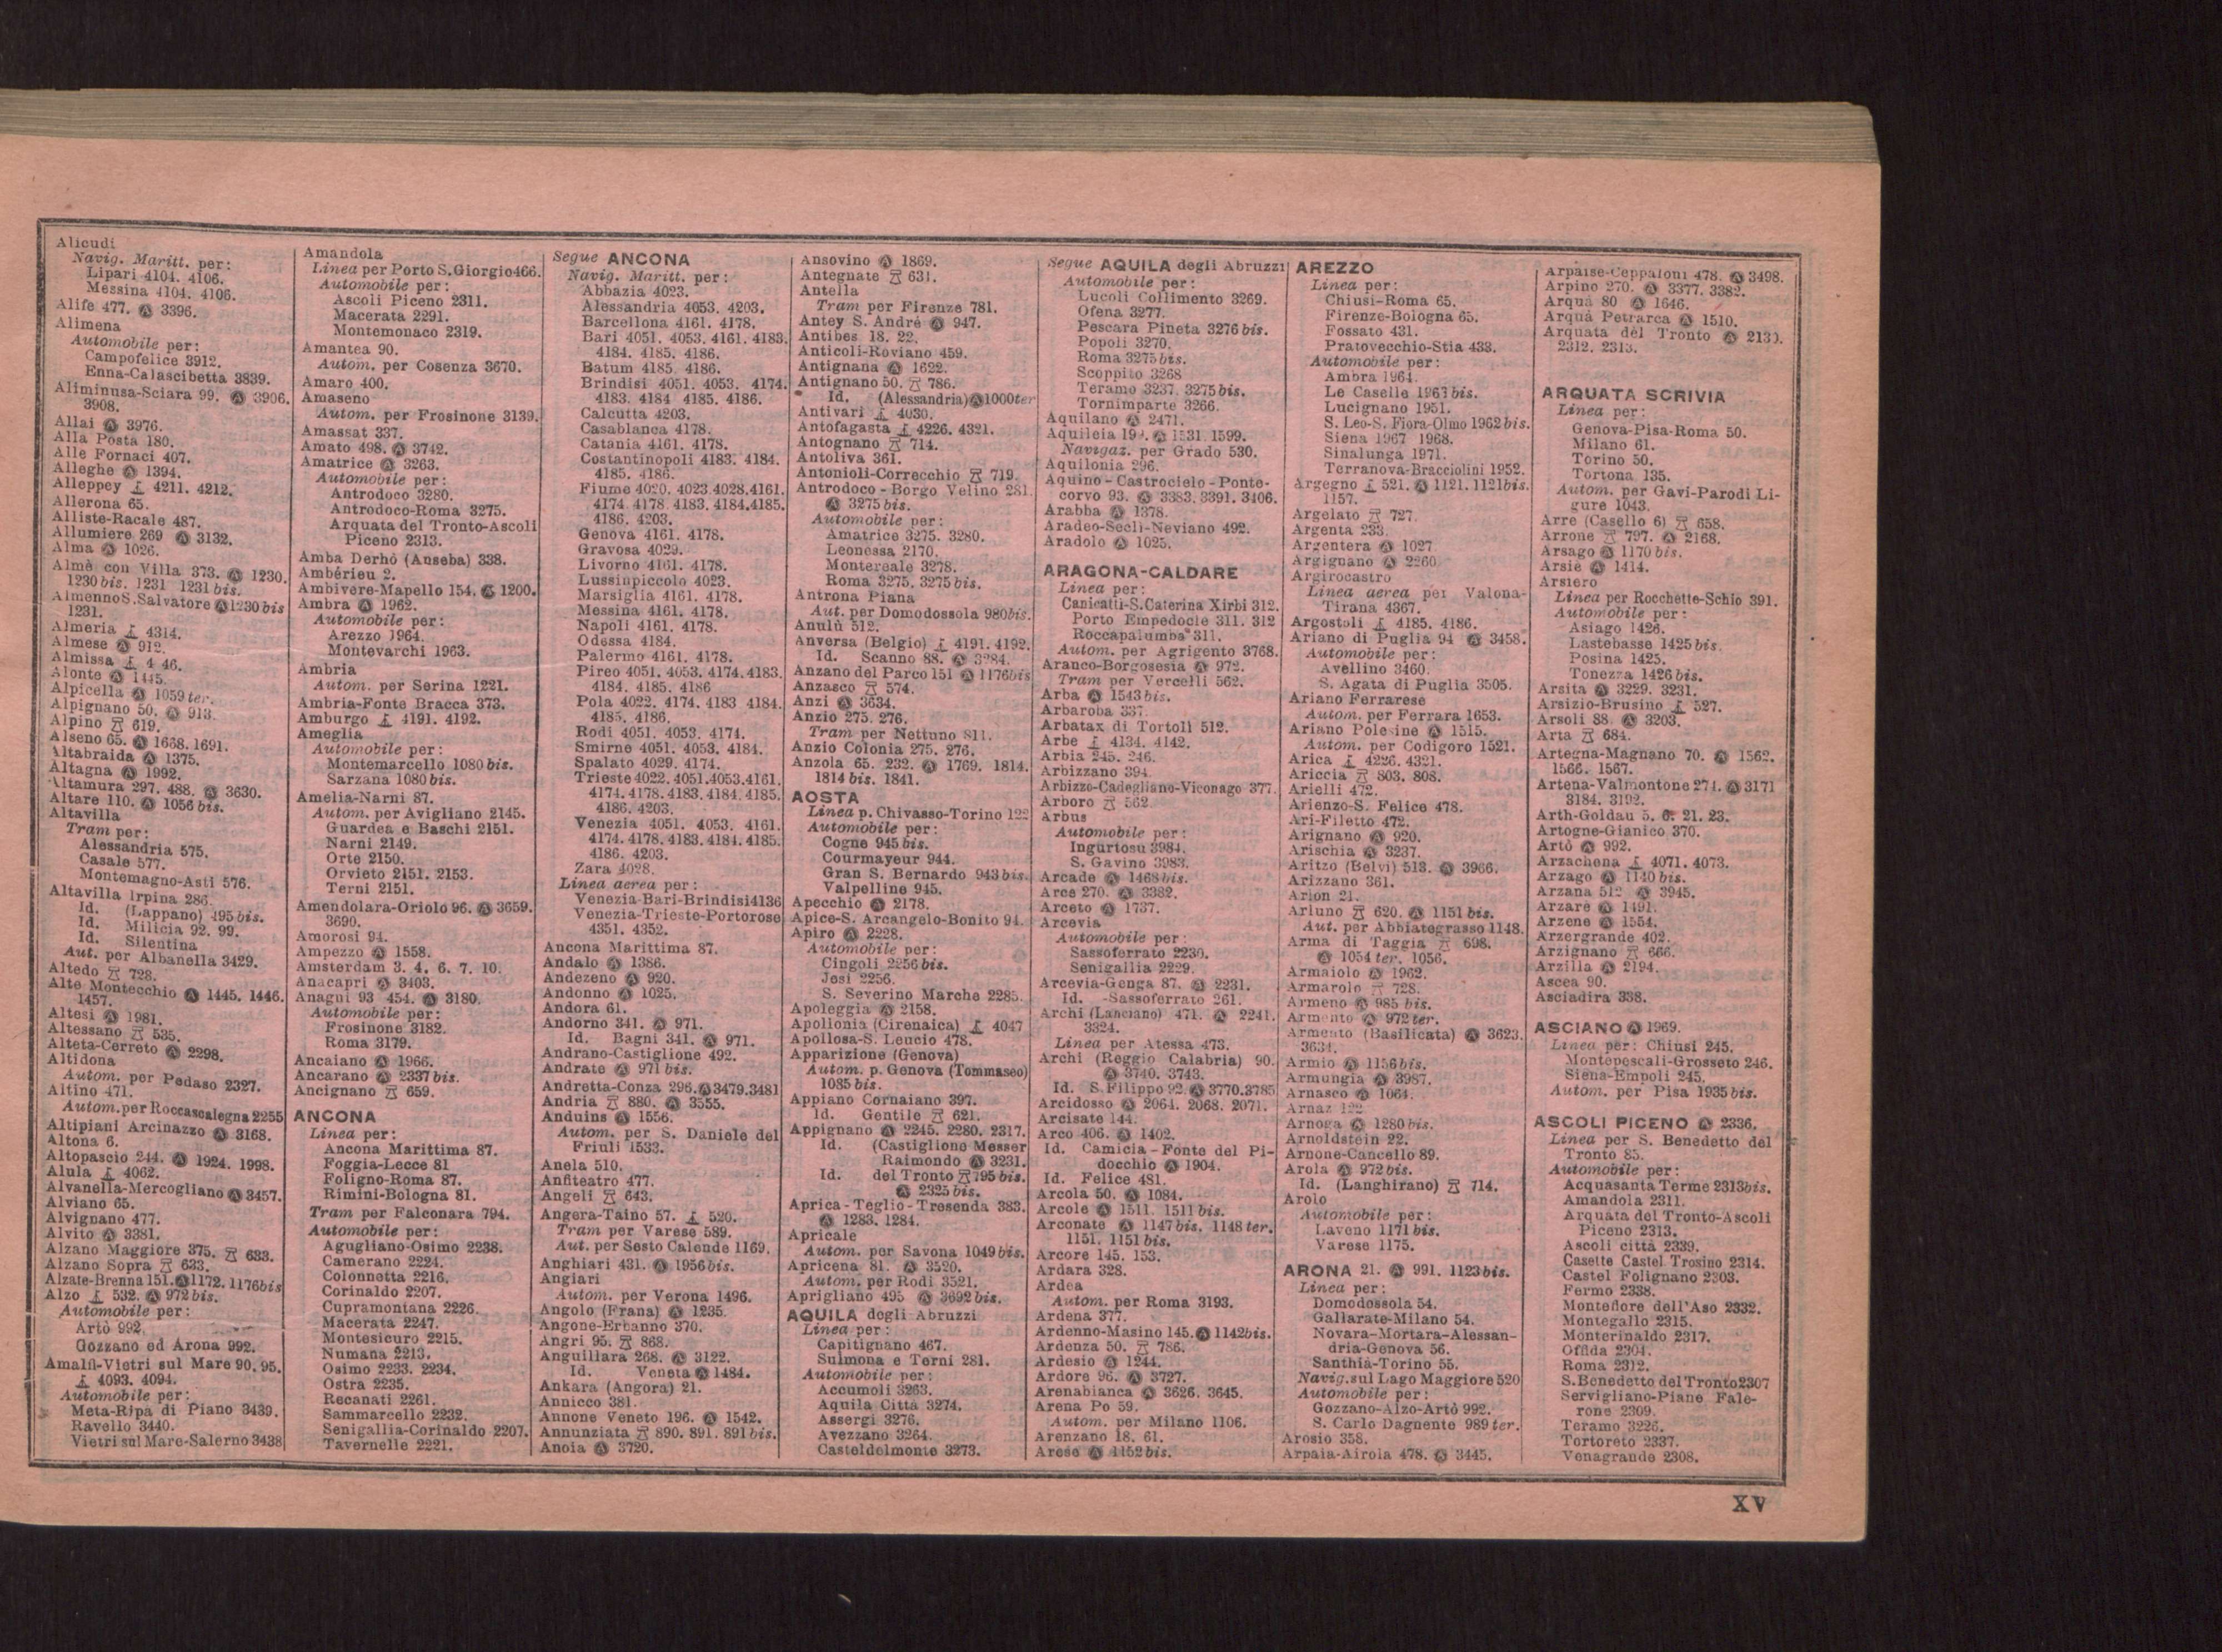 Alicudi
Navig. Maritt. per:
Lipari 4104. 4106.
Messina 4104. 4106.
Alife 477. Ⓐ 3396.
Alimena
Automobile per:
Campofelice 3912.
Enna-Calascibetta 3839.
Aliminusa-Sciara 99. Ⓐ 3906.
3908.
Allai Ⓐ 3976.
Alla Posta 180.
Alle Fornaci 407.
Alleghe Ⓐ 1394.
Alleppey ⚓ 4211. 4212.
Allerona 65.
Alliste-Racale 487.
Allumiere 269 Ⓐ 3132.
Alma Ⓐ 1026.
Almè con Villa 373. Ⓐ 1230.
1230 bis. 1231 1231 bis.
Almenno S. Salvatore Ⓐ 1230 bis
1231.
Almeria ⚓ 4314.
Almese Ⓐ 912.
Almissa ⚓ 4 46.
Alonte Ⓐ 1445.
Alpicella Ⓐ 1059 ter.
Alpignano 50. Ⓐ 913.
Alpino 🚊 619.
Alseno 65. Ⓐ 1668. 1691.
Altabraida Ⓐ 1375.
Altagna Ⓐ 1992.
Altamura 297. 488. Ⓐ 3630.
Altare 110. Ⓐ 1056 bis.
Altavilla
Tram per:
Alessandria 575.
Casale 577.
Montemagno-Asti 576.
Altavilla Irpina 286.
Id. (Lappano) 495 bis.
Id. Milicia 92. 99.
Id. Silentina
Aut. per Albanella 3429.
Altedo 🚊 728.
Alte Montecchio Ⓐ 1445. 1446.
1457.
Altesi Ⓐ 1981.
Altessano 🚊 535.
Alteta-Cerreto Ⓐ 2298.
Altidona
Autom. per Pedaso 2327.
Altino 471.
Autom. per Roccascalegna 2255
Altipiani Arcinazzo Ⓐ 3168.
Altona 6.
Altopascio 244. Ⓐ 1924. 1998.
Alula ⚓ 4062.
Alvanella-Mercogliano Ⓐ 3457.
Alviano 65.
Alvignano 477.
Alvito Ⓐ 3381.
Alzano Maggiore 375. 🚊 633.
Alzano Sopra 🚊 633.
Alzate-Brenna 151. Ⓐ 1172. 1176 bis
Alzo ⚓ 532. Ⓐ 972 bis.
Automobile per:
Artò 992.
Gozzano ed Arona 992.
Amalfi-Vietri sul Mare 90. 95.
⚓ 4093. 4094.
Automobile per:
Meta-Ripa di Piano 3439.
Ravello 3440.
Vietri sul Mare-Salerno 3438
Amandola
Linea per Porto S. Giorgio 466.
Automobile per:
Ascoli Piceno 2311.
Macerata 2291.
Montemonaco 2319.
Amantea 90.
Autom. per Cosenza 3670.
Amaro 400.
Amaseno
Autom. per Frosinone 3139.
Amassat 337.
Amato 498. Ⓐ 3742.
Amatrice Ⓐ 3263.
Automobile per:
Antrodoco 3280.
Antrodoco-Roma 3275.
Arquata del Tronto-Ascoli
Piceno 2313.
Amba Derhò (Anseba) 338.
Ambérieu 2.
Ambivere-Mapello 154. Ⓐ 1200.
Ambra Ⓐ 1962.
Automobile per:
Arezzo 1964.
Montevarchi 1963.
Ambria
Autom. per Serina 1221.
Ambria-Fonte Bracca 373.
Amburgo ⚓ 4191. 4192.
Ameglia
Automobile per:
Montemarcello 1080 bis.
Sarzana 1080 bis.
Amelia-Narni 87.
Autom. per Avigliano 2145.
Guardea e Baschi 2151.
Narni 2149.
Orte 2150.
Orvieto 2151. 2153.
Terni 2151.
Amendolara-Oriolo 96. Ⓐ 3659.
3690.
Amorosi 94.
Ampezzo Ⓐ 1558.
Amsterdam 3. 4. 6. 7. 10.
Anacapri Ⓐ 3403.
Anagni 93 454. Ⓐ 3180.
Automobile per:
Frosinone 3182.
Roma 3179.
Ancaiano Ⓐ 1966.
Ancarano Ⓐ 2337 bis.
Ancignano 🚊 659.
ANCONA
Linea per:
Ancona Marittima 87.
Foggia-Lecce 81
Foligno-Roma 87.
Rimini-Bologna 81.
Tram per Falconara 794.
Automobile per:
Agugliano-Osimo 2238.
Camerano 2224.
Colonnetta 2216.
Corinaldo 2207.
Cupramontana 2226.
Macerata 2247.
Montesicuro 2215.
Numana 2213.
Osimo 2233. 2234.
Ostra 2235.
Recanati 2261.
Sammarcello 2232.
Senigallia-Corinaldo 2207.
Tavernelle 2221.
Segue ANCONA
Navig. Maritt. per:
Abbazia 4023.
Alessandria 4053. 4203.
Barcellona 4161. 4178.
Bari 4051. 4053. 4161. 4183.
4184. 4185. 4186.
Batum 4185. 4186.
Brindisi 4051. 4053. 4174.
4183. 4184 4185. 4186.
Calcutta 4203.
Casablanca 4178.
Catania 4161. 4178.
Costantinopoli 4183. 4184.
4185. 4186.
Fiume 4020. 4023. 4028. 4161.
4174. 4178. 4183. 4184. 4185.
4186. 4203.
Genova 4161. 4178.
Gravosa 4029.
Livorno 4161. 4178.
Lussinpiccolo 4023.
Marsiglia 4161. 4178.
Messina 4161. 4178.
Napoli 4161. 4178.
Odessa 4184.
Palermo 4161. 4178.
Pireo 4051. 4053. 4174. 4183.
4184. 4185. 4186
Pola 4022. 4174. 4183 4184.
4185. 4186.
Rodi 4051. 4053. 4174.
Smirne 4051. 4053. 4184.
Spalato 4029. 4174.
Trieste 4022. 4051. 4053. 4161.
4174. 4178. 4183. 4184. 4185.
4186. 4203.
Venezia 4051. 4053. 4161.
4174. 4178. 4183. 4184. 4185.
4186. 4203.
Zara 4028.
Linea aerea per:
Venezia-Bari-Brindisi 4136
Venezia-Trieste-Portorose
4351. 4352.
Ancona Marittima 87.
Andalo Ⓐ 1386.
Andezeno Ⓐ 920.
Andonno Ⓐ 1025.
Andora 61.
Andorno 341. Ⓐ 971.
Id. Bagni 341. Ⓐ 971.
Andrano-Castiglione 492.
Andrate Ⓐ 971 bis.
Andretta-Conza 296. Ⓐ 3479. 3481
Andria 🚊 880. Ⓐ 3555.
Anduins Ⓐ 1556.
Autom. per S. Daniele del
Friuli 1533.
Anela 510.
Anfiteatro 477.
Angeli 🚊 643.
Angera-Taino 57. ⚓ 520.
Tram per Varese 589.
Aut. per Sesto Calende 1169.
Anghiari 431. Ⓐ 1956 bis.
Angiari
Autom. per Verona 1496.
Angolo (Frana) Ⓐ 1235.
Angone-Erbanno 370.
Angri 95. 🚊 868.
Anguillara 268. Ⓐ 3122.
Id. Veneta Ⓐ 1484.
Ankara (Angora) 21.
Annicco 381.
Annone Veneto 196. Ⓐ 1542.
Annunziata 🚊 890. 891. 891 bis.
Anoia Ⓐ 3720.
Ansovino Ⓐ 1869.
Antegnate 🚊 631.
Antella
Tram per Firenze 781.
Antey S. André Ⓐ 947.
Antibes 18. 22.
Anticoli-Roviano 459.
Antignana Ⓐ 1622.
Antignano 50. 🚊 786.
Id. (Alessandria) Ⓐ 1000 ter
Antivari ⚓ 4030.
Antofagasta ⚓ 4226. 4321.
Antognano 🚊 714.
Antoliva 361.
Antonioli-Correcchio 🚊 719.
Antrodoco-Borgo Velino 281.
Ⓐ 3275 bis.
Automobile per:
Amatrice 3275. 3280.
Leonessa 2170.
Montereale 3278.
Roma 3275. 3275 bis.
Antrona Piana
Aut. per Domodossola 980 bis.
Anulù 512.
Anversa (Belgio) ⚓ 4191. 4192.
Id. Scanno 88. Ⓐ 3284.
Anzano del Parco 151 Ⓐ 1176 bis
Anzasco 🚊 574.
Anzi Ⓐ 3634.
Anzio 275. 276.
Tram per Nettuno 811.
Anzio Colonia 275. 276.
Anzola 65. 232. Ⓐ 1769. 1814.
1814 bis. 1841.
AOSTA
Linea p. Chivasso-Torino 122
Automobile per:
Cogne 945 bis.
Courmayeur 944.
Gran S. Bernardo 943 bis.
Valpelline 945.
Apecchio Ⓐ 2178.
Apice-S. Arcangelo-Bonito 94.
Apiro Ⓐ 2228.
Automobile per:
Cingoli 2256 bis.
Jesi 2256.
S. Severino Marche 2285.
Apoleggia Ⓐ 2158.
Apollonia (Cirenaica) ⚓ 4047
Apollosa-S. Leucio 478.
Apparizione (Genova)
Autom. p. Genova (Tommaseo)
1035 bis.
Appiano Cornaiano 397.
Id. Gentile 🚊 621.
Appignano Ⓐ 2245. 2280. 2317.
Id. (Castiglione Messer
Raimondo Ⓐ 3231.
Id. del Tronto 🚊 795 bis.
Ⓐ 2325 bis.
Aprica-Teglio-Tresenda 383.
Ⓐ 1283. 1284.
Apricale
Autom. per Savona 1049 bis.
Apricena 81. Ⓐ 3520.
Autom. per Rodi 3521.
Aprigliano 495 Ⓐ 3692 bis.
AQUILA degli Abruzzi
Linea per:
Capitignano 467.
Sulmona e Terni 281.
Automobile per:
Accumoli 3263.
Aquila Città 3274.
Assergi 3276.
Avezzano 3264.
Casteldelmonte 3273.
Segue AQUILA degli Abruzzi
Automobile per:
Lucoli Collimento 3269.
Ofena 3277.
Pescara Pineta 3276 bis.
Popoli 3270.
Roma 3275 bis.
Scoppito 3268
Teramo 3237. 3275 bis.
Tornimparte 3266.
Aquilano Ⓐ 2471.
Aquileia Ⓐ 1531. 1599.
Navigaz. per Grado 530.
Aquilonia 296.
Aquino-Castrocielo-Ponte-
corvo 93. Ⓐ 3383. 3391. 3406.
Arabba Ⓐ 1378.
Aradeo-Seclì-Neviano 492.
Aradolo Ⓐ 1025.
ARAGONA-CALDARE
Linea per:
Canicattì-S. Caterina Xirbi 312.
Porto Empedocle 311. 312
Roccapalumba 311.
Autom. per Agrigento 3768.
Aranco-Borgosesia Ⓐ 972.
Tram per Vercelli 562.
Arba Ⓐ 1543 bis.
Arbaroba 337.
Arbatax di Tortolì 512.
Arbe ⚓ 4134. 4142.
Arbia 245. 246.
Arbizzano 394.
Arbizzo-Cadegliano-Viconago 377.
Arboro 🚊 562.
Arbus
Automobile per:
Ingurtosu 3984.
S. Gavino 3983.
Arcade Ⓐ 1468 bis.
Arce 270. Ⓐ 3382.
Arceto Ⓐ 1737.
Arcevia
Automobile per:
Sassoferrato 2230.
Senigallia 2229.
Arcevia-Genga 87. Ⓐ 2231.
Id. -Sassoferrato 261.
Archi (Lanciano) 471. Ⓐ 2241.
3324.
Linea per Atessa 473.
Archi (Reggio Calabria) 90.
Ⓐ 3740. 3743.
Id. S. Filippo 92. Ⓐ 3770. 3785
Arcidosso Ⓐ 2064. 2068. 2071.
Arcisate 144.
Arco 406. Ⓐ 1402.
Id. Camicia-Fonte del Pi-
docchio Ⓐ 1904.
Id. Felice 481.
Arcola 50. Ⓐ 1084.
Arcole Ⓐ 1511. 1511 bis.
Arconate Ⓐ 1147 bis. 1148 ter.
1151. 1151 bis.
Arcore 145. 153.
Ardara 328.
Ardea
Autom. per Roma 3193.
Ardena 377.
Ardenno-Masino 145. Ⓐ 1142 bis.
Ardenza 50. 🚊 786.
Ardesio Ⓐ 1244.
Ardore 96. Ⓐ 3727.
Arenabianca Ⓐ 3626. 3645.
Arena Po 59.
Autom. per Milano 1106.
Arenzano 18. 61.
Arese Ⓐ 1152 bis.
AREZZO
Linea per:
Chiusi-Roma 65.
Firenze-Bologna 65.
Fossato 431.
Pratovecchio-Stia 433.
Automobile per:
Ambra 1964.
Le Caselle 1963 bis.
Lucignano 1951.
S. Leo-S. Fiora-Olmo 1962 bis.
Siena 1967 1968.
Sinalunga 1971.
Terranova-Bracciolini 1952.
Argegno ⚓ 521. Ⓐ 1121. 1121 bis.
1157.
Argelato 🚊 727.
Argenta 233.
Argentera Ⓐ 1027
Argignano Ⓐ 2260
Argirocastro
Linea aerea per Valona-
Tirana 4367.
Argostoli ⚓ 4185. 4186.
Ariano di Puglia 94 Ⓐ 3458.
Automobile per:
Avellino 3460.
S. Agata di Puglia 3505.
Ariano Ferrarese
Autom. per Ferrara 1653.
Ariano Polesine Ⓐ 1515.
Autom. per Codigoro 1521.
Arica ⚓ 4226. 4321.
Ariccia 🚊 803. 808.
Arielli 472.
Arienzo-S. Felice 478.
Ari-Filetto 472.
Arignano Ⓐ 920.
Arischia Ⓐ 3237.
Aritzo (Belvì) 513. Ⓐ 3966.
Arizzano 361.
Arlon 21.
Arluno 🚊 620. Ⓐ 1151 bis.
Aut. per Abbiategrasso 1148.
Arma di Taggia 🚊 698.
Ⓐ 1054 ter. 1056.
Armaiolo Ⓐ 1962.
Armarolo 🚊 728.
Armeno Ⓐ 985 bis.
Armento Ⓐ 972 ter.
Armento (Basilicata) Ⓐ 3623.
3634.
Armio Ⓐ 1156 bis.
Armungia Ⓐ 3987.
Arnasco Ⓐ 1064.
Arnaz 122
Arnoga Ⓐ 1280 bis.
Arnoldstein 22.
Arnone-Cancello 89.
Arola Ⓐ 972 bis.
Id. (Langhirano) 🚊 714.
Arolo
Automobile per:
Laveno 1171 bis.
Varese 1175.
ARONA 21. Ⓐ 991. 1123 bis.
Linea per:
Domodossola 54.
Gallarate-Milano 54.
Novara-Mortara-Alessan-
dria-Genova 56.
Santhià-Torino 55.
Navig. sul Lago Maggiore 520
Automobile per:
Gozzano-Alzo-Artò 992.
S. Carlo Dagnente 989 ter.
Arosio 358.
Arpaia-Airola 478. Ⓐ 3445.
Arpaise-Ceppaloni 478. Ⓐ 3498.
Arpino 270. Ⓐ 3377. 3382.
Arquà 80 Ⓐ 1646.
Arquà Petrarca Ⓐ 1510.
Arquata del Tronto Ⓐ
2312. 2313.
ARQUATA SCRIVIA
Linea per:
Genova-Pisa-Roma 50.
Milano 61.
Torino 50.
Tortona 135.
Autom. per Gavi-Parodi Li-
gure 1043.
Arre (Casello 6) 🚊 658.
Arrone 🚊 797. Ⓐ 2168.
Arsago Ⓐ 1170 bis.
Arsiè Ⓐ 1414.
Arsiero
Linea per Rocchette-Schio 391.
Automobile per:
Asiago 1426.
Lastebasse 1425 bis.
Posina 1425.
Tonezza 1426 bis.
Arsita Ⓐ 3229. 3231.
Arsizio-Brusino ⚓ 527.
Arsoli 88. Ⓐ 3203.
Arta 🚊 684.
Artegna-Magnano 70. Ⓐ 1562.
1566. 1567.
Artena-Valmontone 274. Ⓐ 3171
3184. 3192.
Arth-Goldau 5. 6. 21. 23.
Artogne-Gianico 370.
Artò Ⓐ 992.
Arzachena ⚓ 4071. 4073.
Arzago Ⓐ 1140 bis.
Arzana 512 Ⓐ 3945.
Arzare Ⓐ 1491.
Arzene Ⓐ 1554.
Arzergrande 402.
Arzignano 🚊 666.
Arzilla Ⓐ 2194.
Ascea 90.
Asciadira 338.
ASCIANO Ⓐ 1969.
Linea per: Chiusi 245.
Montepescali-Grosseto 246.
Siena-Empoli 245.
Autom. per Pisa 1935 bis.
ASCOLI PICENO Ⓐ 2336.
Linea per S. Benedetto del
Tronto 85.
Automobile per:
Acquasanta Terme 2313 bis.
Amandola 2311.
Arquata del Tronto-Ascoli
Piceno 2313.
Ascoli città 2339.
Casette Castel Trosino 2314.
Castel Folignano 2303.
Fermo 2338.
Montefiore dell'Aso 2332.
Montegallo 2315.
Monterinaldo 2317.
Offida 2304.
Roma 2312.
S. Benedetto del Tronto 2307
Servigliano-Piane Fale-
rone 2309.
Teramo 3226.
Tortoreto 2337.
Venagrande 2308.
XV